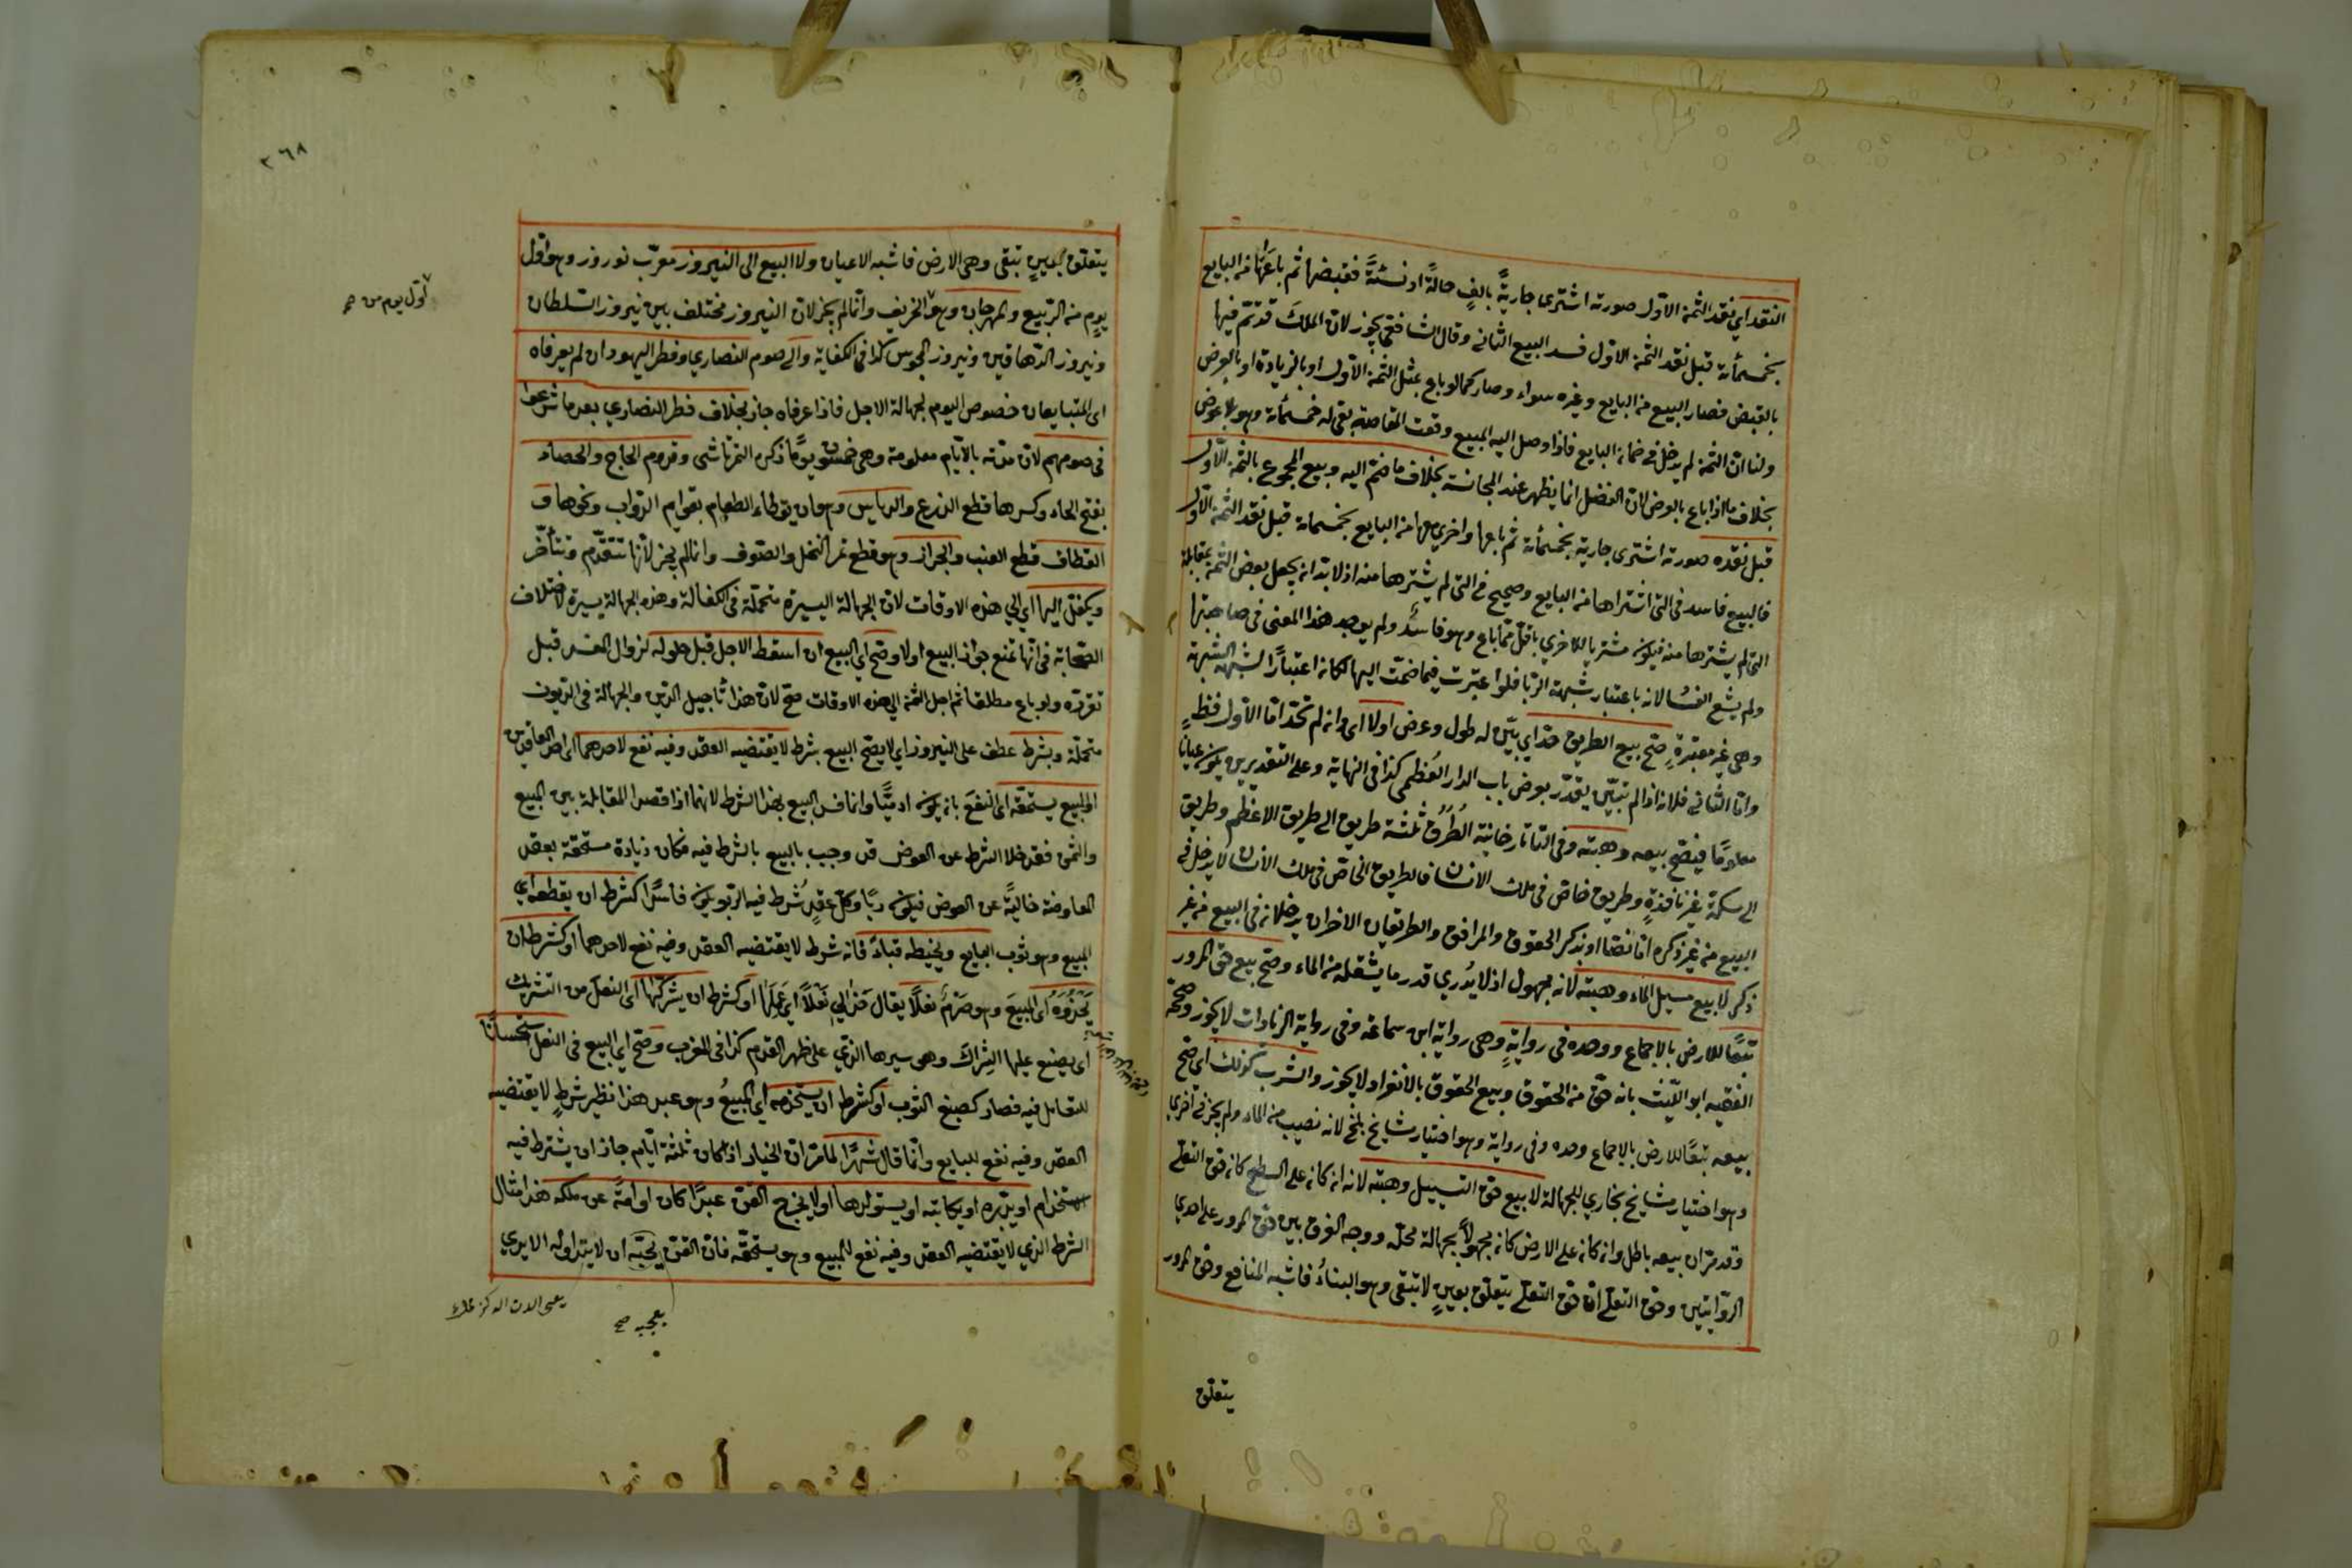 النقد اي نقد الثمن الاول صورته اشترى جارية بالف حالة او نسئة فقبضها ثم باعها من البايع
بخمسمأنة قبل نقد الثمن الاول فسد البيع الثاني وقال الشافعي يجوز لان الملك قد تم فيها
بالقبض فصار البيع من البايع وغيره سواء وصار كما لو باع بمثل الثمن الاول او بالزيادة او بالعرض
ولنا ان الثمن لم يدخل في ضمان البايع فاذا وصل اليه المبيع وقعت المقاصة بقى له خمسمأنة وهو بلا عوض
بخلاف ما اذا باع بالعرض لان الفضل انما يظهر عند المجانسة بخلاف ما ضم اليه وبيع المجموع بالثمن الاول
قبل نقده صورته اشترى جارية بخمسمأنة ثم باعها واخرى معها من البايع بخمسمانة قبل نقد الثمن الاول
فالبيع فاسد في التي اشتراها من البايع وصحيح في التي لم يشترها منه اذ لا بد ان يجعل بعض الثمن بمقابلة
التي لم يشترها منه فيكون مشتريا للاخري باقل مما باع وهو فاسد ولم يوجد هذا المعنى في صاحبتها
ولم يشع الفساد لانه باعتبار شبهة الربا فلو اعتبرت فيما ضمت اليها لكان اعتبارا لشبهة الشبهة
وهي غير معتبرة صح بيع الطريق حد اي بين له طول وعرض اولا اي وان لم تحد اما الاول فظ
واما الثاني فلانه اذا لم تبين يقدر بعرض باب الدار العظمى كذا في النهاية وعلى التقديرين يكون عيانا
معلوما فيصح بيعه وهبته وفي التاتارخانية الطرق ثلثة طريق الى طريق الاعظم وطريق
الى سكة غير نافذة وطريق خاص في ملك الانسان فالطريق الخاص في ملك الانسان لا يدخل في
البيع من غير ذكره اما نصا او بذكر الحقوق والمرافق والطريقان الاخران يدخلان في البيع من غير
ذكر لا بيع مسيل الماء وهبته لانه مجهول اذ لا يدري قدر ما يشغله من الماء وصح بيع حق المرور
تبعا للارض بالاجماع ووحده في رواية وهي رواية ابن سماعة وفي رواية الزيادات لا يجوز وصححه
الفقيه ابو الليث بانه حق من الحقوق وبيع الحقوق بالانفراد لا يجوز والشرب كذلك اي صح
بيعه تبعا للارض بالاجماع وحده وفي رواية وهو اختيار مشايخ بلخ لانه نصيب من الماء ولم يجز في اخري
وهو اختيار مشايخ بخاري للجهالة لا بيع حق التسييل وهبته لانه ان كان على السطح كان حق التعلي
وقد مر ان بيعه باطل وان كان على الارض كان مجهولا لجهالة محله ووجه الفرق بين حق المرور على احدي
الروايتين وحق التعلي ان حق التعلي يتعلق بعين لا تبقى وهو البناء فاشبه المنافع وحق المرور
يتعلق
٣٦٨
يتعلق بعين تبقى وهي الارض فاشبه الاعيان ولا البيع الى النيروز معرب نوروز وهو اول
يوم من الربيع والمهرجان وهو الخريف وانما لم يجز لان النيروز مختلف بين نيروز السلطان
اول يوم من صح
ونيروز الدهاقين ونيروز المجوس كذا في الكفاية والى صوم النصاري وفطر اليهود ان لم يعرفاه
اى المتبايعان خصوص اليوم لجهالة الاجل فاذا عرفاه جاز بخلاف فطر النصاري بعد ما شرعوا
في صومهم لان مدته بالايام معلومة وهي خمسون يوما ذكره التمرتاشي وقدوم الحاج والحصاد
بفتح الحاء وكسرها قطع الزرع والدياس وهو ان يوطاء الطعام بقوايم الدواب ونحوها و
القطاف قطع العنب والجزاز وهو قطع ثمر النخل والصوف وانما لم يجز لانها تتقدم وتتأخر
ويكفل اليها اي الي هذه الاوقات لان الجهالة اليسيرة متحملة في الكفالة وهذه الجهالة يسيرة لاختلاف
الصحابة في انها تمنع جواز البيع اولا وصح اي البيع ان اسقط الاجل قبل حلوله لزوال المفسد قبل
تقرره ولو باع مطلقا ثم اجل الثمن الي هذه الاوقات صح لان هذا تأجيل الدين والجهالة في الديون
متحملة وبشرط عطف على النيروز اي لا يصح البيع بشرط لا يقتضيه العقد وفيه نفع لاحدهما اى احد العاقدين
او لمبيع يستحقه اى النفع بان يكون ادميا وانما فسد البيع بهذا الشرط لانهما اذا قصدا المقابلة بين المبيع
والثمن فقد خلا الشرط عن العوض قد وجب بالبيع بالشرط فيه فكان زيادة مستحقة بعقد
المعاوضة خالية عن العوض فيكون ربا وكل عقد شرط فيه الربو يكون فاسدا كشرط ان يقطعه اي
المبيع وهو ثوب البايع ويخيطه قباء فانه شرط لا يقتضيه العقد وفيه نفع لاحدهما او كشرط ان
يحذوه اى المبيع وهو صرم نعلا يقال حذا لي نعلا اي عملها او كشرط ان يشركها اى النعل من التشريك
اى يصنع عليها الشراك وهي سيرها الذي على ظهر القدم كذا في المغرب وصح اي البيع في النعل استحسانا
للتعامل فيه فصار كصبغ الثوب او كشرط ان يستخدمه اي المبيع وهو عبد هذا نظير شرط لا يقتضيه
العقد وفيه نفع للبايع وانما قال شهرا لما مر ان الخيار اذا كان ثلثة ايام جاز ان يشترط فيه
استخدام او يدبره او يكاتبه او يستولدها اولا يخرج القن عبدا كان او امة عن ملكه هذا مثال
الشرط الذي لا يقتضيه العقد وفيه نفع للمبيع وهو يستحقه فان القن يحبه ان لا يتداوله الايدي
يعجبه صح